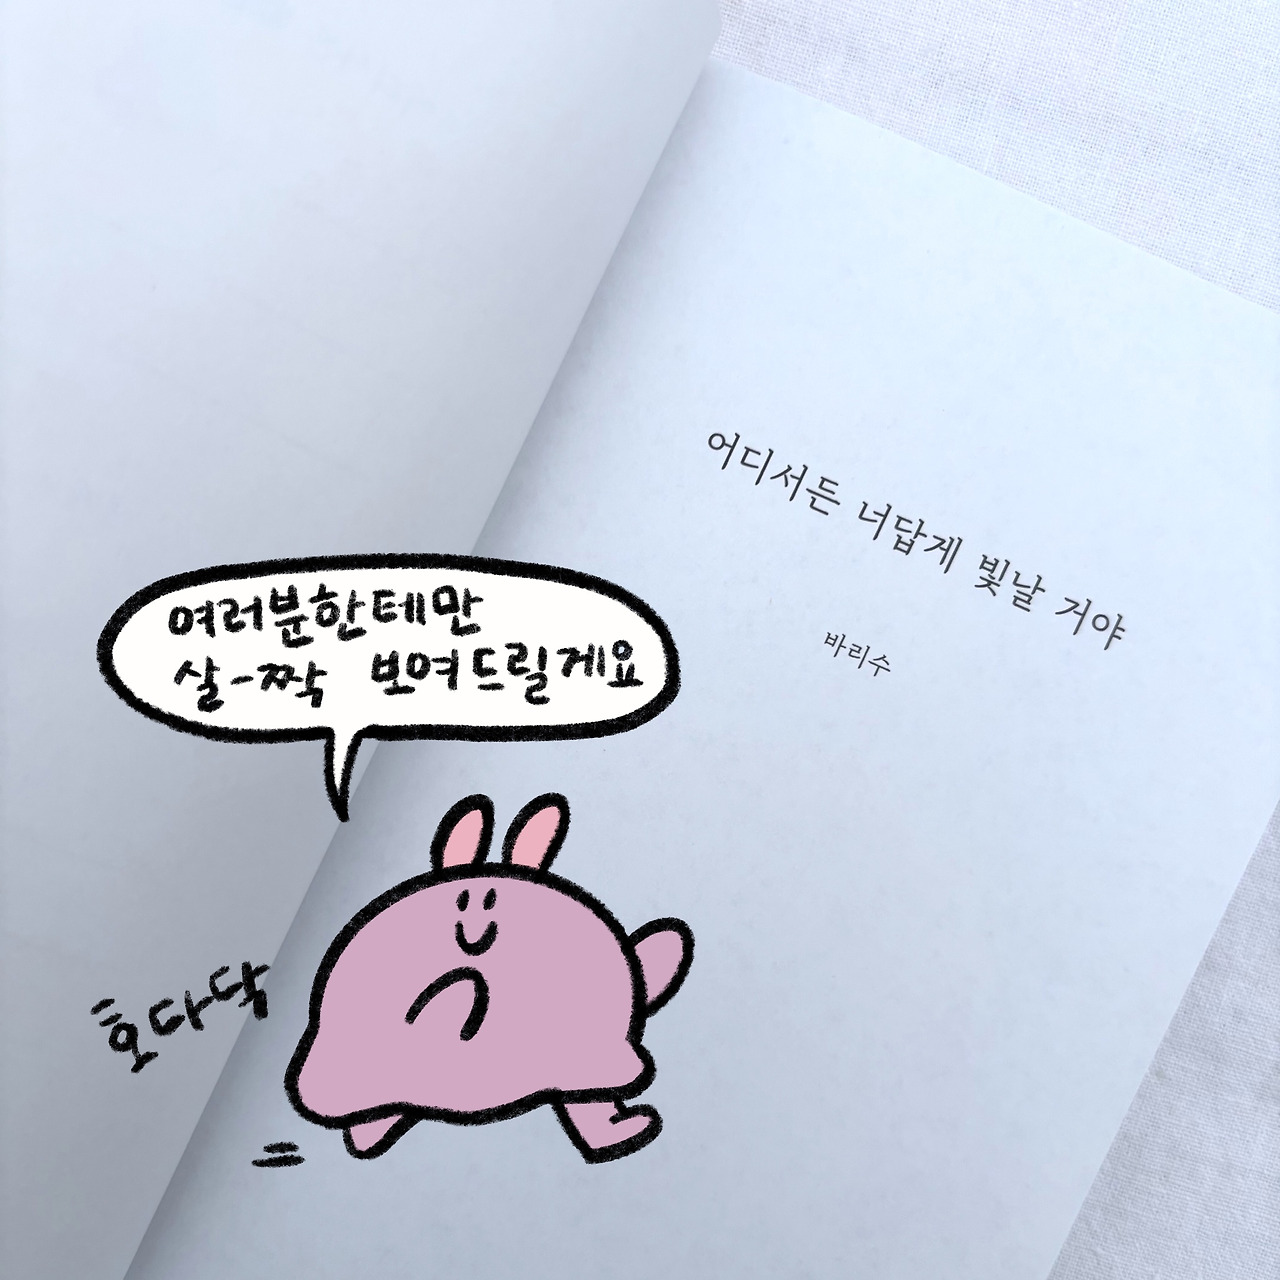 어디서든 너답게 빛날 거야
바리수
여러분한테만
살-짝 보여드릴게요
호다닥